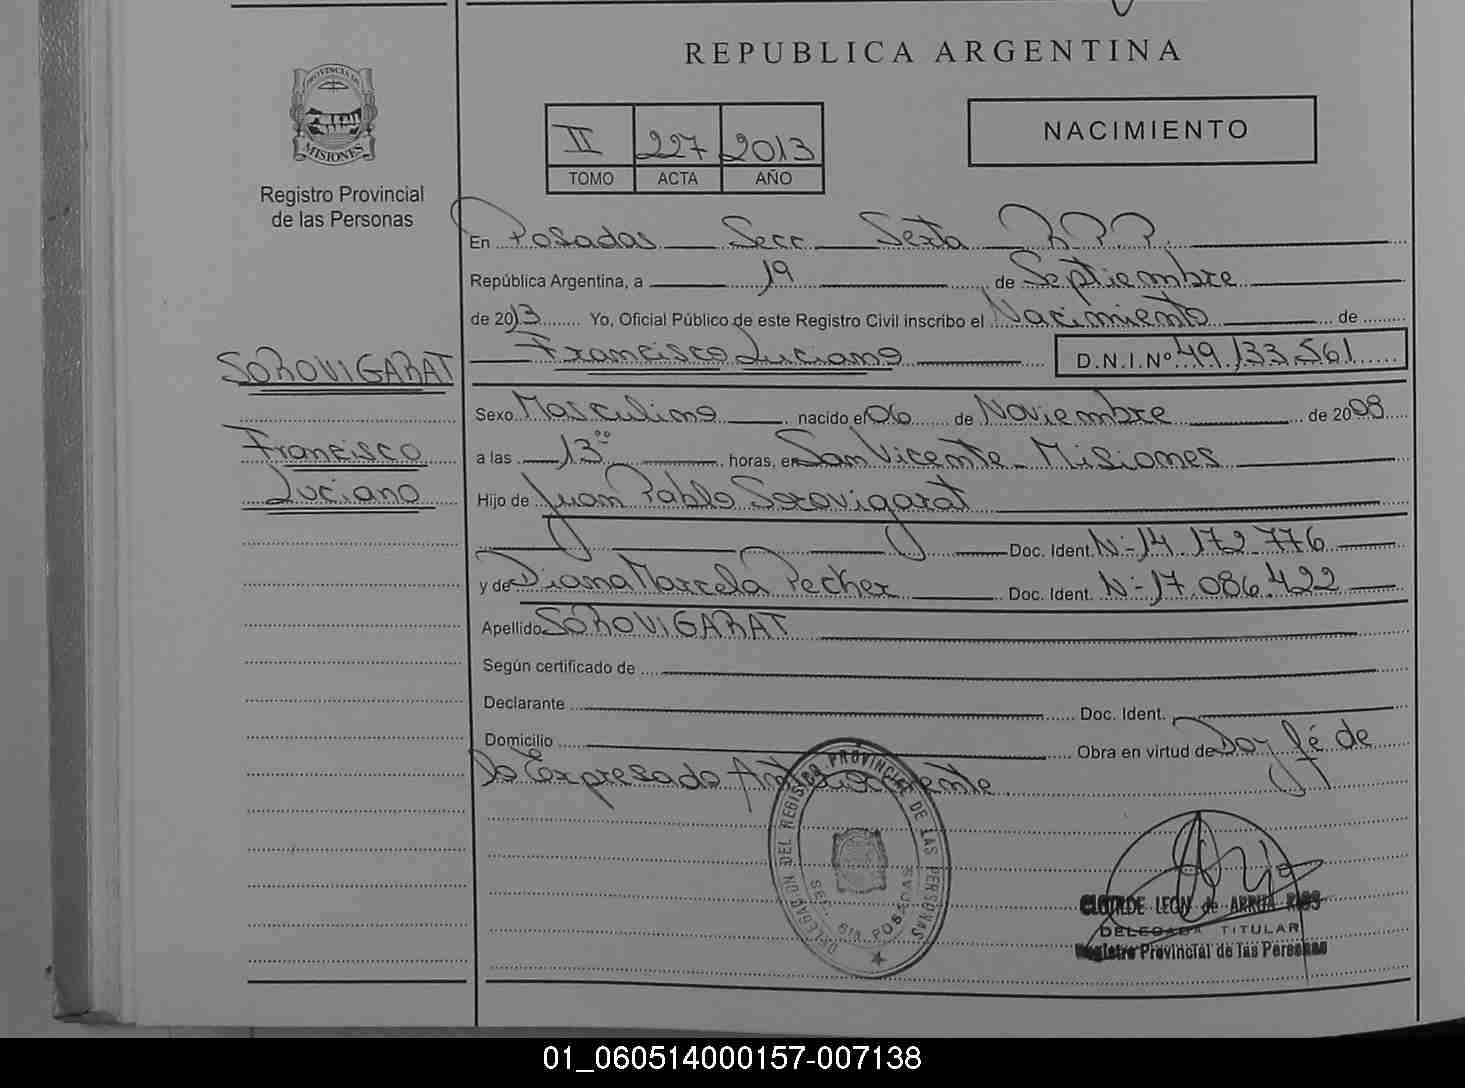 REPUBLICA ARGENTINA
PROVINCIA DE
MISIONES
Registro Provincial
de las Personas
II 227 2013
TOMO ACTA AÑO
NACIMIENTO
En Posadas Secc Sexta R P P.
República Argentina, a 19 de Septiembre
de 2013 Yo, Oficial Público de este Registro Civil inscribo el Nacimiento de
Francisco Luciano D.N.I.Nº 49.133.561
SOROVIGARAT
Francisco
Luciano
Sexo Masculino nacido el 06 de Noviembre de 2008
a las 13 00 horas, en San Vicente - Misiones
Hijo de Juan Pablo Sorovigarat
Doc. Ident. Nº 14.172.776
y de Diana Marcela Pecher Doc. Ident. Nº 17.086.422
Apellido SOROVIGARAT
Según certificado de
Declarante Doc. Ident.
Domicilio Obra en virtud de Doy fé de
Lo Expresado Anteriormente
DELEGACION DEL REGISTRO PROVINCIAL DE LAS PERSONAS
SEC. 6ta. POSADAS
CLOTILDE LEON de ARRUA RIOS
DELEGADA TITULAR
Registro Provincial de las Personas
01_060514000157-007138